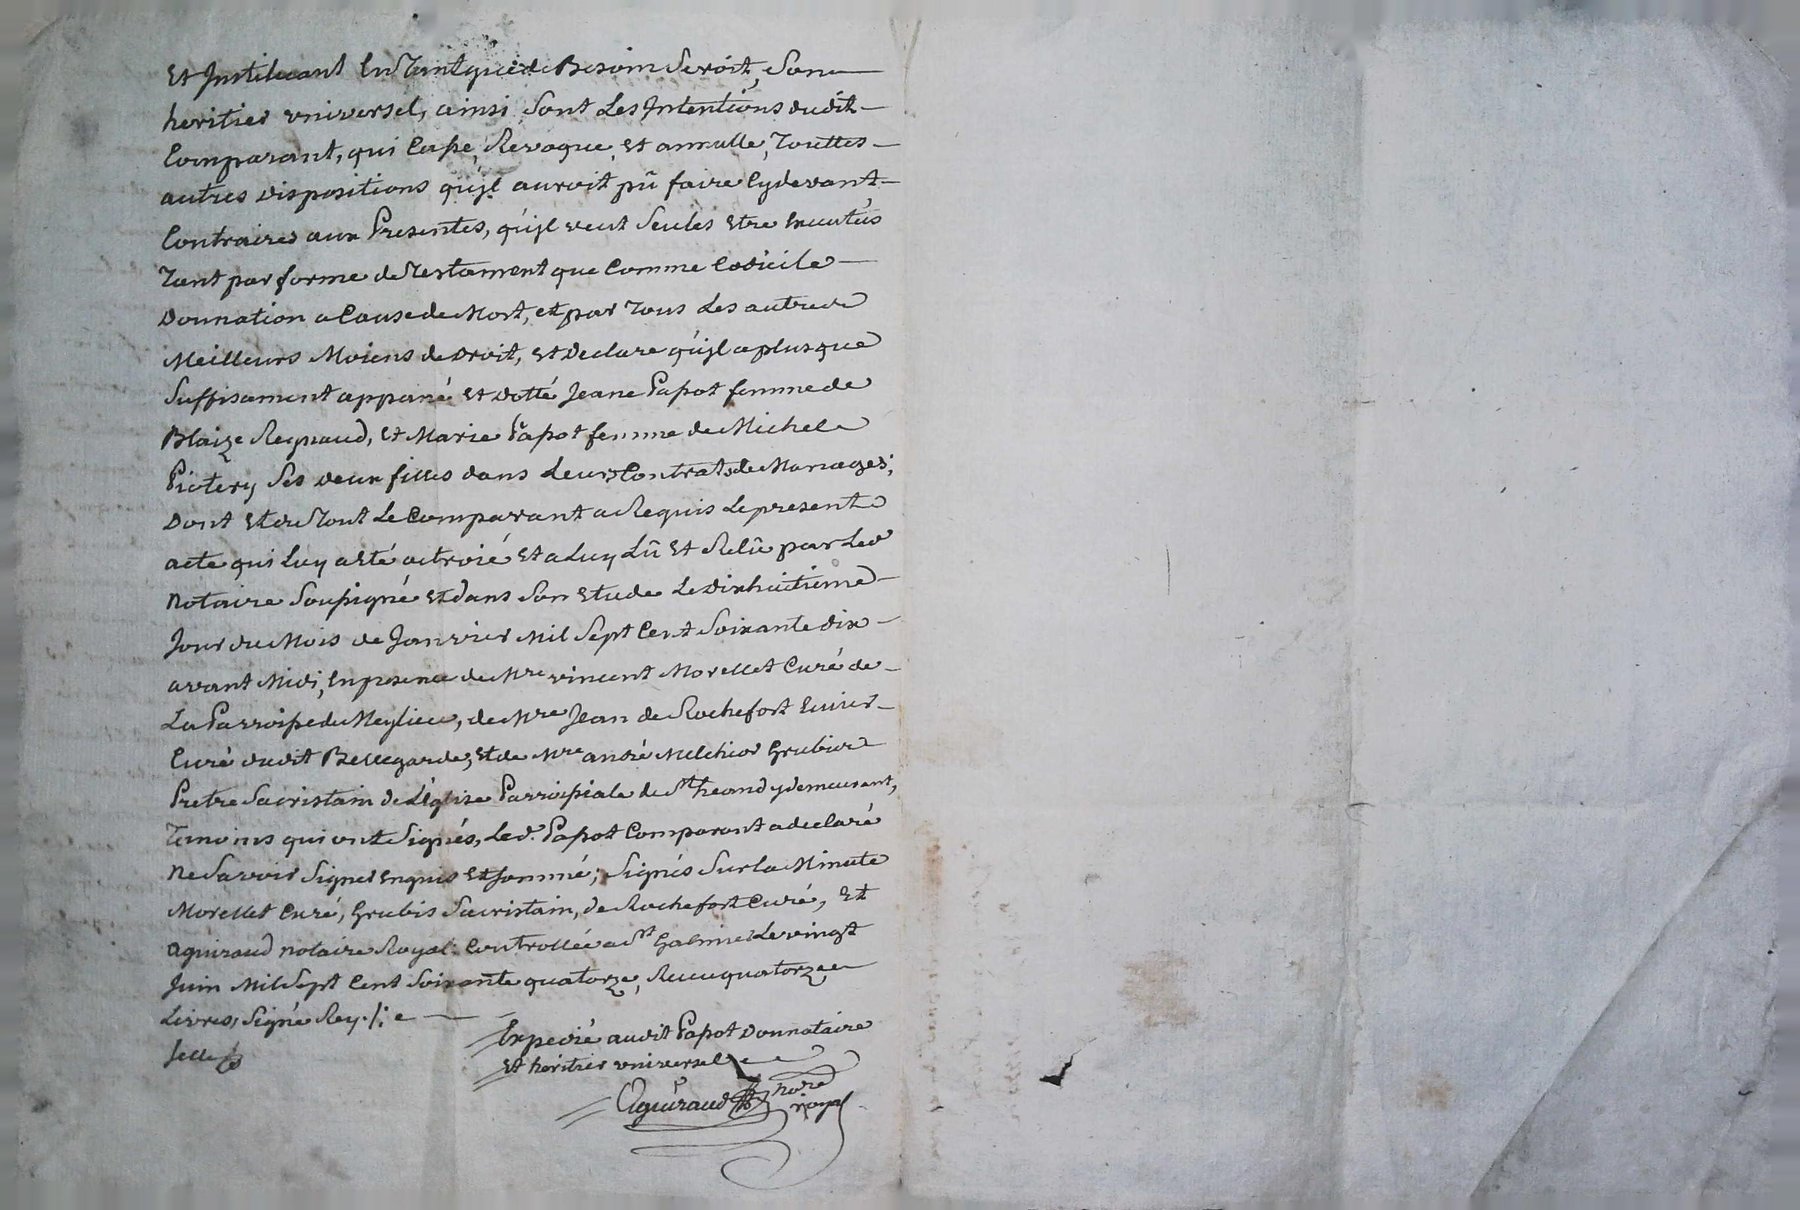 Et Instituant En Tant que de Besoin Seroit, Son
heritier vniversel, ainsi Sont Les Intentions dudit
Comparant, qui Casse, Revoque, Et annulle, Touttes
autres dispositions qu'jl auroit pû faire Cydevant
Contraires aux Presentes, qu'jl veut Seules Etre Executés
Tant par forme de Testament que Comme Codicile
Donnation a Cause de Mort, et par Tous Les autres
Meilleurs Moiens de Droit, Et Declare qu'jl a plus que
Suffisament appané Et Dotté Jeane Papot femme de
Blaize Reynaud, Et Marie Papot femme de Michel
Ses deux filles dans Leurs Contrats de Mariages;
Dont Et du Tout Le Comparant a Requis Le present
acte qui Luy a Eté octroié Et a Luy Lû Et Relû par Led
Notaire Soussigné Et dans Son Etude Le Dixhuitieme
Jour du Mois de Janvier Mil Sept Cent Soixante dix
avant Midi, En presence de Mre vincent Morellet Curé de
La Parroisse de Meylieu, de Mre Jean de Rochefort Ecuier
Curé dudit Bellegarde, Et de Mre andré Melchior Grubis
Pretre Sacristain de L'église Parroissiale de St heand y demeurant,
Temoins qui ont Signés, Led. Papot Comparant a declaré
Ne Savoir Signer Enquis Et Sommé; Signés Sur la Minute
Morellet Curé, Grubis Sacristain, de Rochefort Curé, Et
aguiraud notaire Royal. Controllée a St Galmier Le vingt
Juin Mil Sept Cent Soixante quatorze, Receu quatorze
Livres, Signé Rey./.
Expedié audit Papot Donnataire
Et heritier vniversel
Aguiraud nore
royal